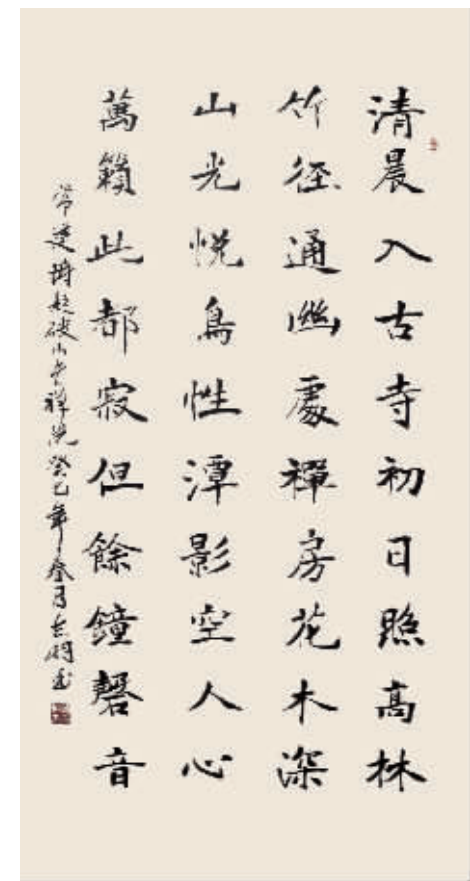 清晨入古寺初日照高林
竹径通幽處禪房花木深
山光悦鳥性潭影空人心
萬籟此都寂但餘鐘磬音
常建詩題破山寺禅院癸巳年春月